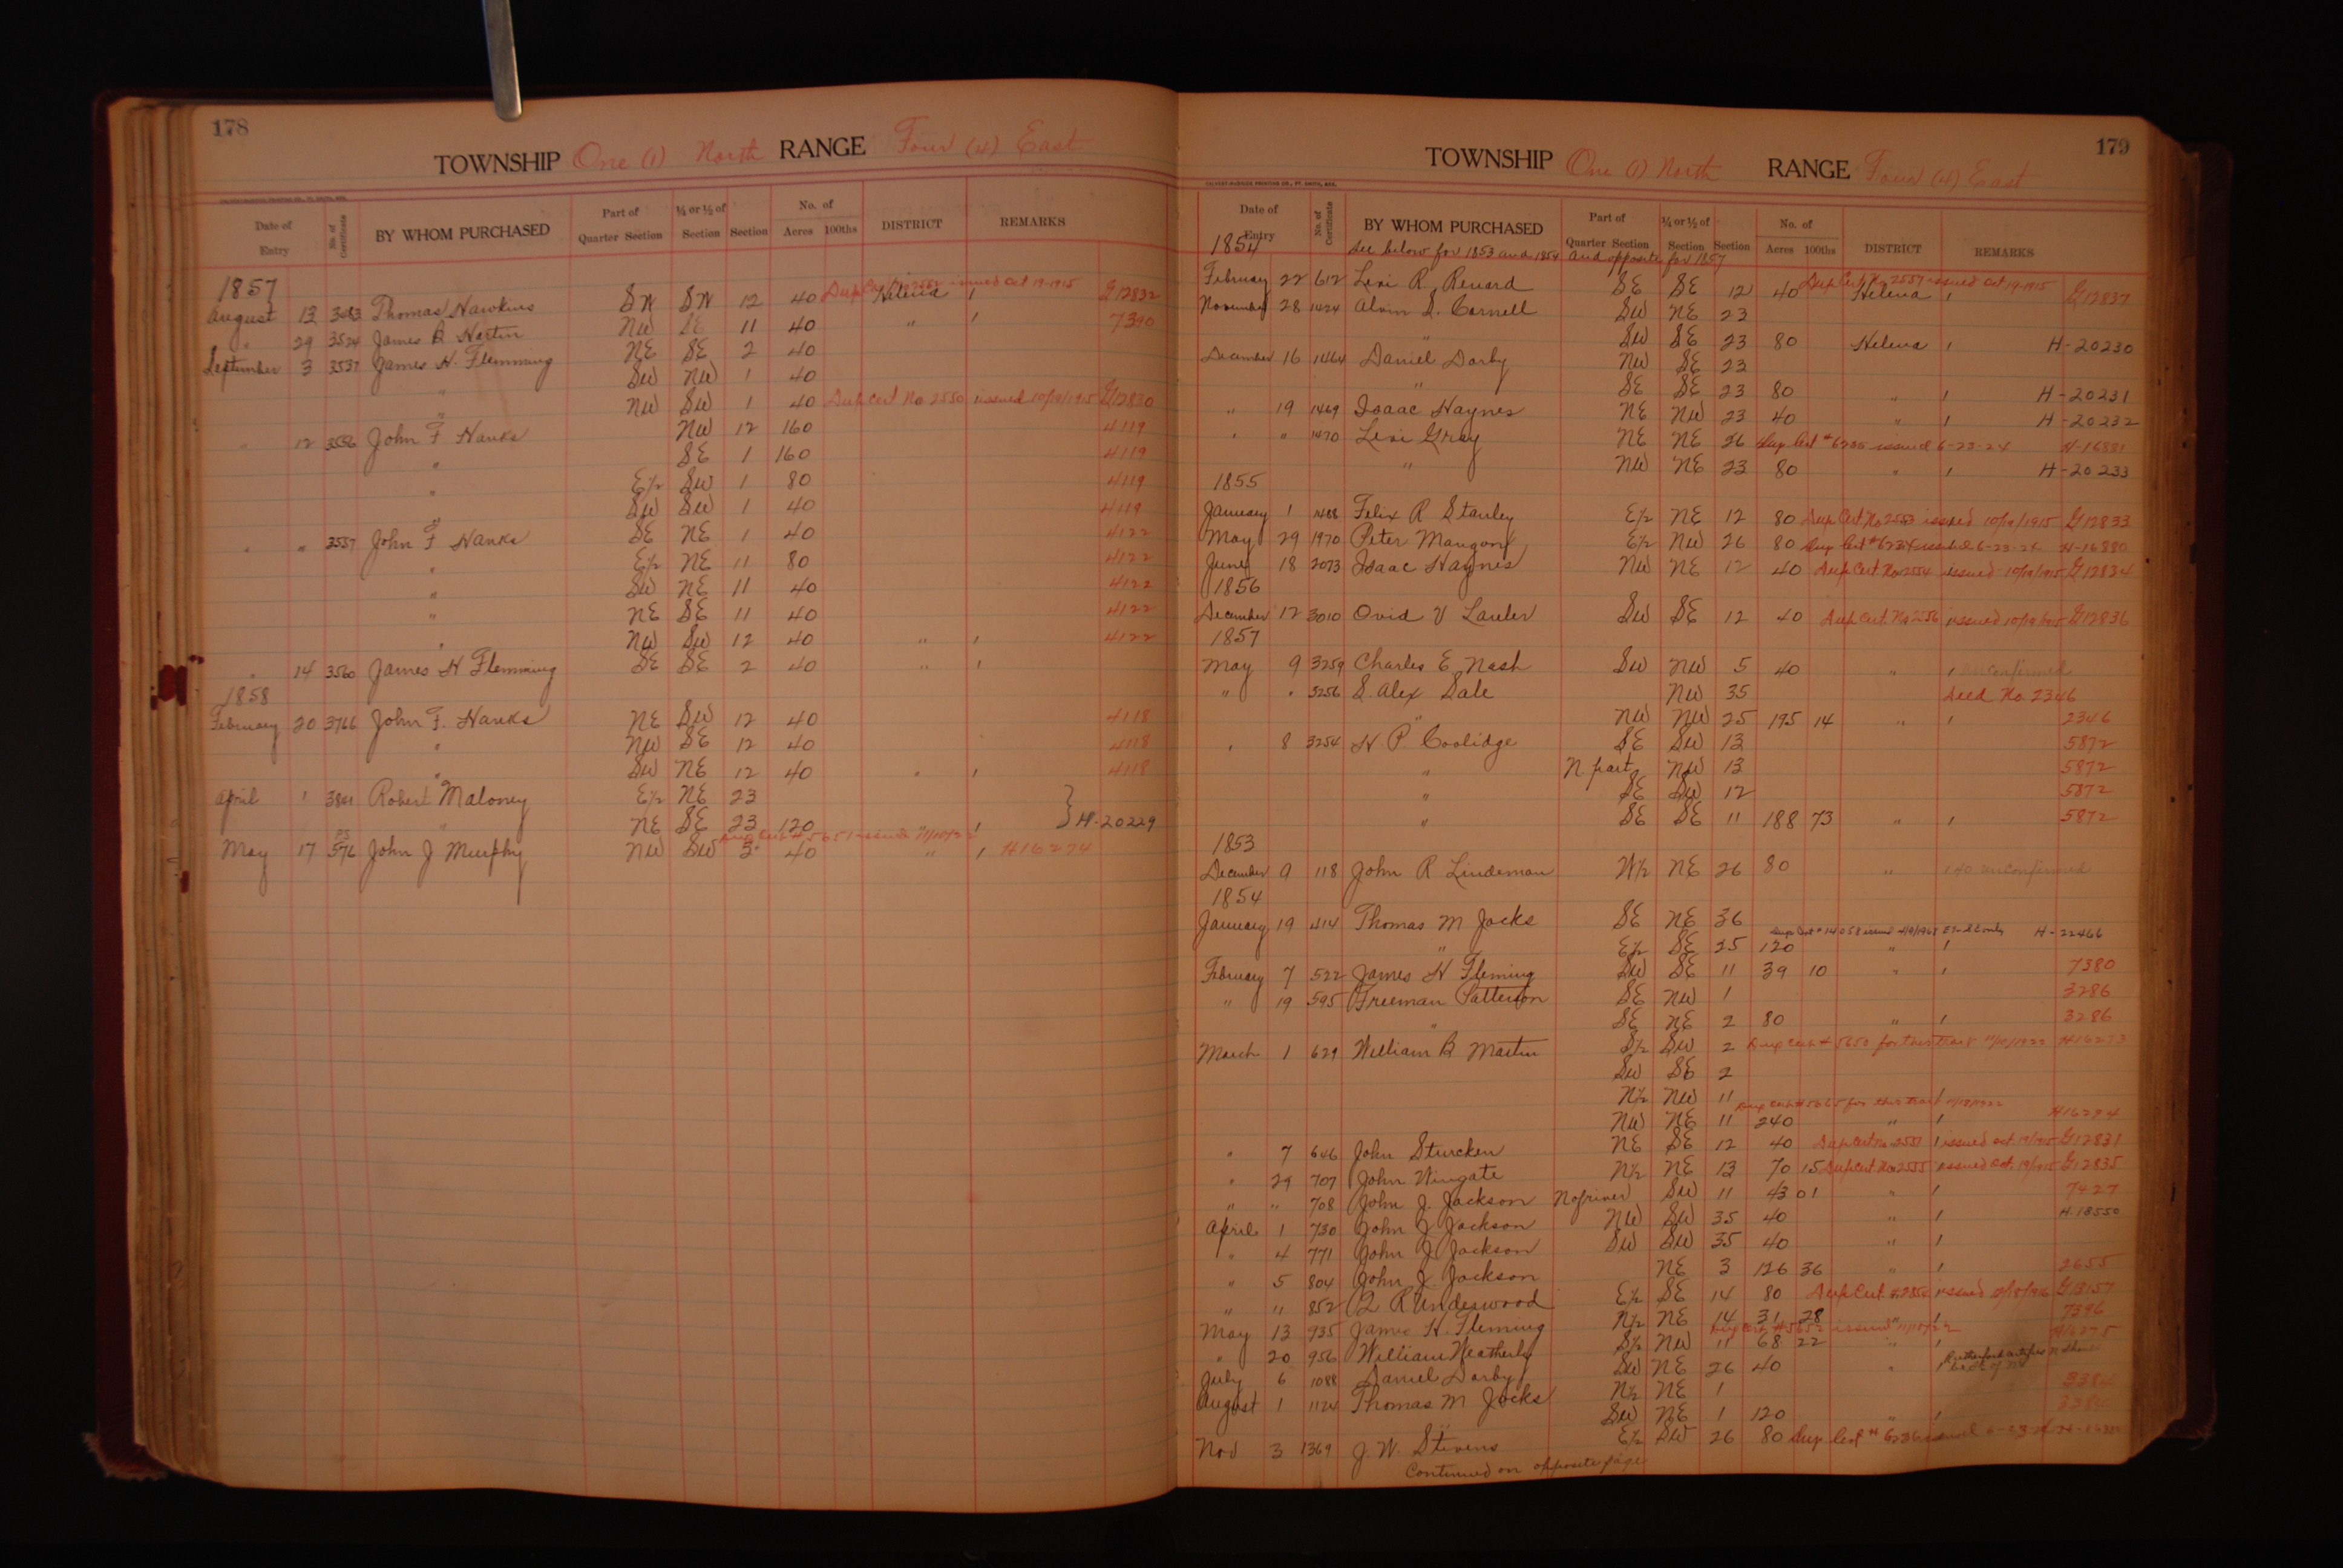 178
TOWNSHIP One (1) North RANGE Four (4) East
Date of Entry No. of Certificate BY WHOM PURCHASED Part of Quarter Section ¼ or ½ of Section Section No. of Acres 100ths DISTRICT REMARKS
1857
August 13 3483 Thomas Hawkins SW SW 12 40 Dup Cert No 2552 issued Oct 19-1915 Helena G12832
" 29 3524 James B Hartin NW SE 11 40 " 7390
September 3 3537 James H. Flemming NE SE 2 40
" SW NW 1 40
" NW SW 1 40 Dup Cert No 2550 issued 10/19/1915 G12830
" 12 3556 John F Hanks NW 12 160 4119
" SE 1 160 4119
" E½ SW 1 80 4119
" SW SW 1 40 4119
" " 3557 John F Hanks SE NE 1 40 4122
" E½ NE 11 80 4122
" SW NE 11 40 4122
" NE SE 11 40 4122
" NW SW 12 40 " 4122
" 14 3560 James H Flemming SE SE 2 40 "
1858
February 20 3766 John F. Hanks NE SW 12 40 4118
" NW SE 12 40 4118
" SW NE 12 40 " 4118
April 1 3841 Robert Maloney E½ NE 23
" NE SE 23 120 " H-20229
Dup Cert # 5651 issued 11/10/22
May 17 576 John J Murphy NW SW 5 40 " H16274
179
TOWNSHIP One (1) North RANGE Four (4) East
Date of Entry No. of Certificate BY WHOM PURCHASED Part of Quarter Section ¼ or ½ of Section Section No. of Acres 100ths DISTRICT REMARKS
1854 See below for 1853 and 1854 and opposite for 1857
February 22 612 Levi R. Renard SE SE 12 40 Dup Cert No 2557 issued Oct 19-1915 Helena G12837
November 28 1424 Alvin S. Cornell SW NE 23
" SW SE 23 80 Helena H-20230
December 16 1464 Daniel Darby NW SE 23
" SE SE 23 80 " H-20231
" 19 1469 Isaac Haynes NE NW 23 40 " H-20232
" " 1470 Levi Gray NE NE 26 Dup Cert # 6235 issued 6-23-24 H-16881
" NW NE 23 80 " H-20233
1855
January 1 1488 Felix R Stanley E½ NE 12 80 Dup Cert No 2553 issued 10/19/1915 G12833
May 29 1970 Peter Mangony E½ NW 26 80 Dup Cert # 6234 issued 6-23-24 H-16880
June 18 2073 Isaac Haynes NW NE 12 40 Dup Cert No 2554 issued 10/19/1915 G12834
1856
December 12 3010 Ovid V Lauler SW SE 12 40 Dup Cert. No 2556 issued 10/19/1915 G12836
1857
May 9 3259 Charles E. Nash SW NW 5 40 " unconfirmed
" " 3256 S. Alex Sale NW 35 Deed No. 2346
" NW NW 25 195 14 " 2346
" 8 3254 H P. Coolidge SE SW 13 5872
" N. part NW 13 5872
" SE SW 12 5872
" SE SE 11 188 73 " 5872
1853
December 9 118 John R Lindeman W½ NE 26 80 " 40 unconfirmed
1854
January 19 414 Thomas M Jacks SE NE 36
Dup Cert # 14058 issued E½-SE only H-22466
" E½ SE 25 120 "
February 7 522 James H Fleming SW SE 11 39 10 " 7380
" 19 595 Freeman Patterson SE NW 1 3286
" SE NE 2 80 " 3286
March 1 629 William B Martin S½ SW 2 Dup Cert # 5650 for this tract 11/10/1922 H16273
SW SE 2
N½ NW 11
Dup Cert # 5665 for this tract 11/18/1922
NW NE 11 240 " H16294
" 7 646 John Sturcken NE SE 12 40 Dup Cert No 2551 issued Oct 19/1915 G12831
" 29 707 John Wingate N½ NE 13 70 15 Dup Cert No 2555 issued Oct. 19/1915 G12835
" " 708 John J. Jackson N of river SW 11 43 01 " 7427
April 1 730 John J Jackson NW SW 35 40 " H-18550
" 4 771 John J Jackson SW SW 35 40 "
" 5 804 John J. Jackson NE 3 126 36 " 2655
" " 852 Q R Underwood E½ SE 14 80 Dup Cert. issued G13157
May 13 935 James H. Fleming N½ NE 14 31 28 " 7396
Dup Cert # 5652 issued 11/10/22
" 20 956 William Weatherly S½ NW 11 68 22 " H16275
July 6 1088 Daniel Darby SW NE 26 40 "
August 1 1124 Thomas M Jacks N½ NE 1 3384
" SW NE 1 120 "
Nov 3 1369 J. W. Stevens E½ SW 26 80 Dup Cert # 6236 issued 6-23-24
Continued on opposite page